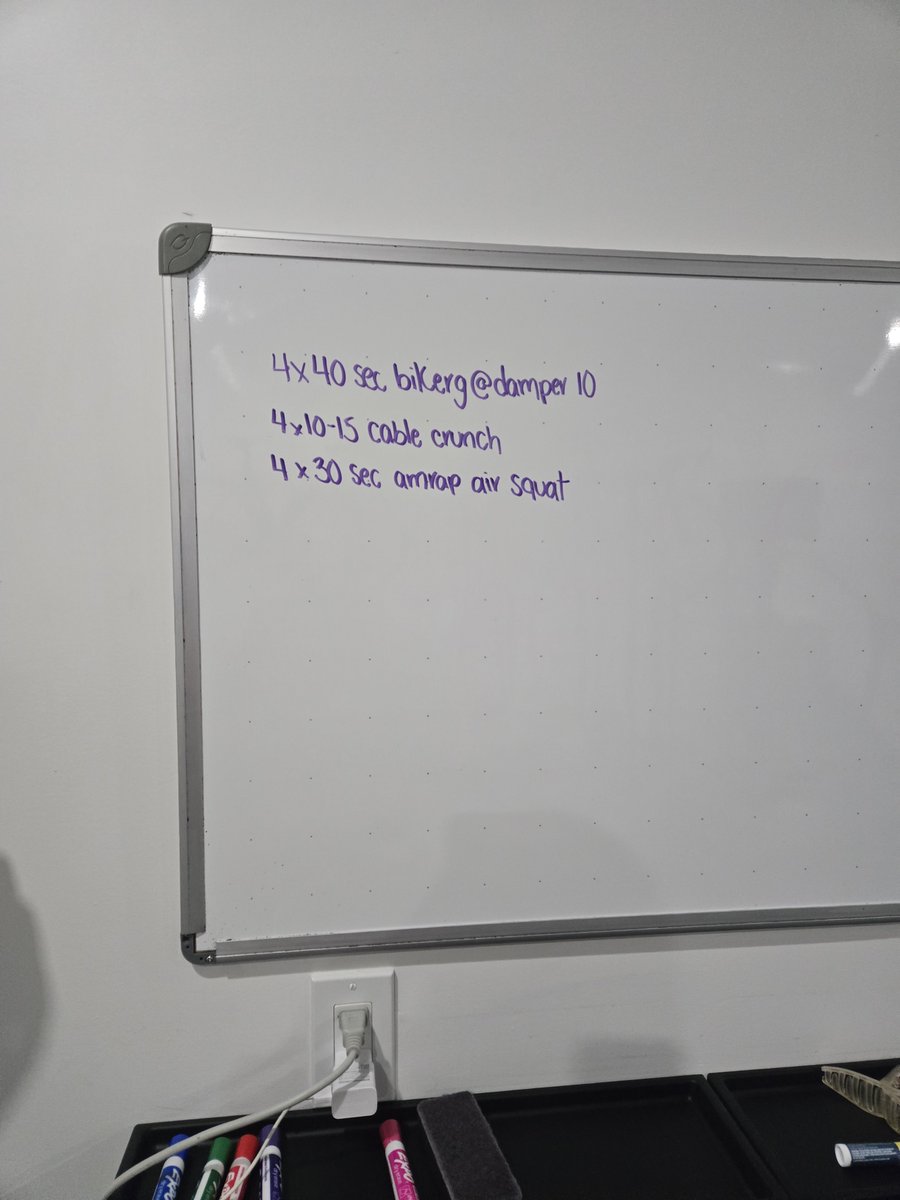 4x40 sec bikerg@damper 10
4x10-15 cable crunch
4 x 30 sec amrap air squat
EXPO
EXPO